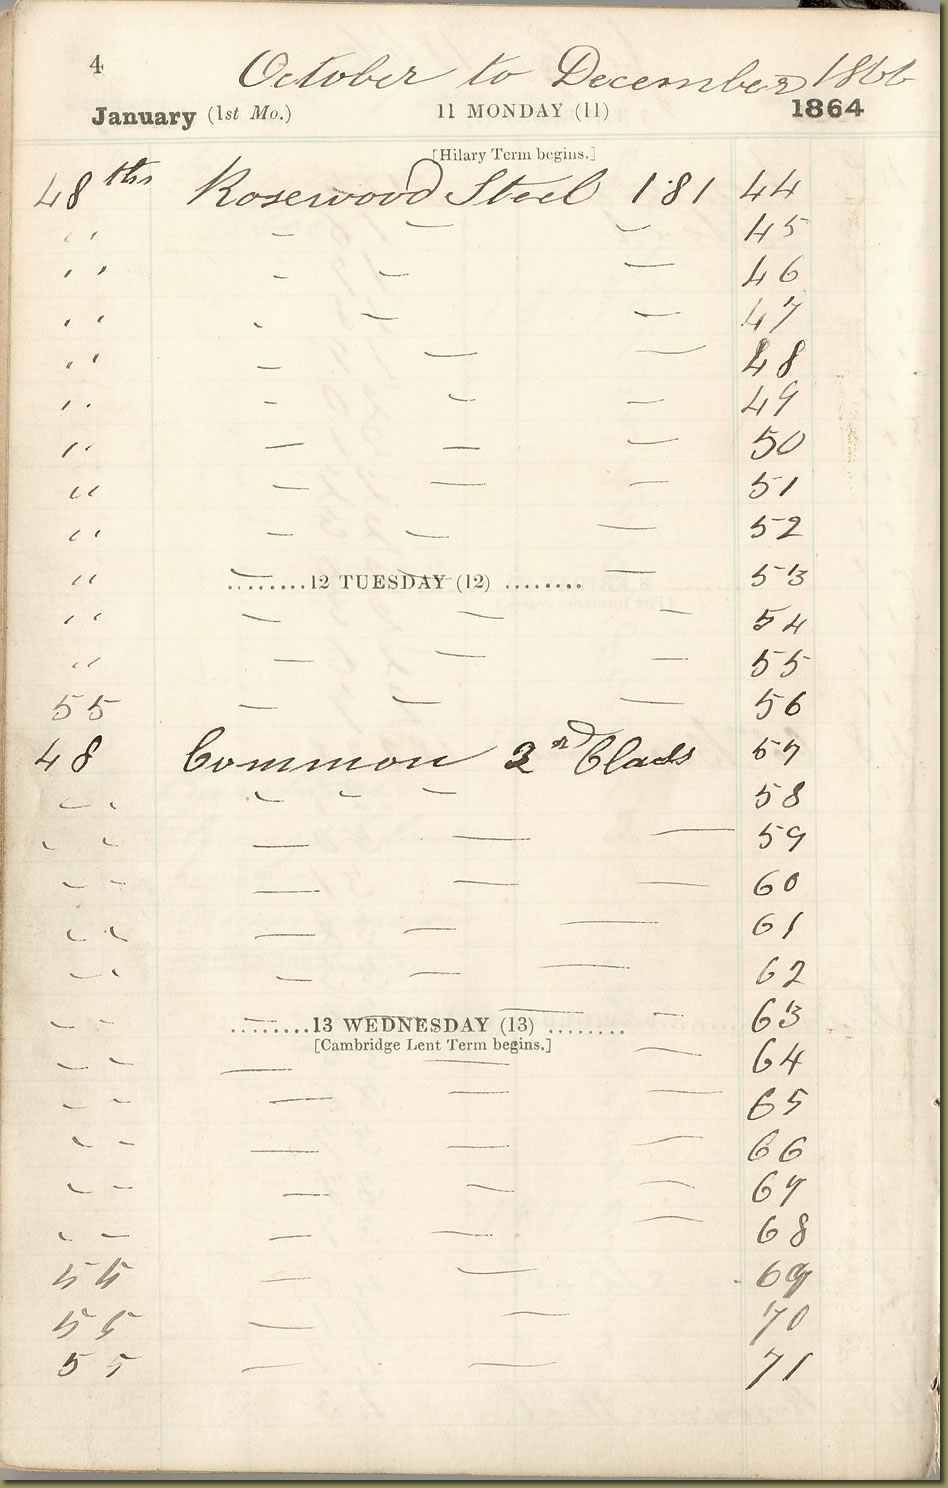 4 October to December 1866
January (1st Mo.) 11 MONDAY (11) 1864
[Hilary Term begins.]
48ths Rosewood Steel 181 44
" — — — 45
" — — — 46
" — — — 47
" — — — 48
" — — — 49
" — — — 50
" — — — 51
" — — — 52
" — — — 53
........12 TUESDAY (12) ........
" — — — 54
" — — — 55
55 — — — 56
48 Common 2nd Class 57
" — — — 58
" — — — 59
" — — — 60
" — — — 61
" — — — 62
" — — — 63
........13 WEDNESDAY (13) ........
[Cambridge Lent Term begins.]
" — — — 64
" — — — 65
" — — — 66
" — — — 67
" — — — 68
55 — — 69
55 — — 70
55 — — 71